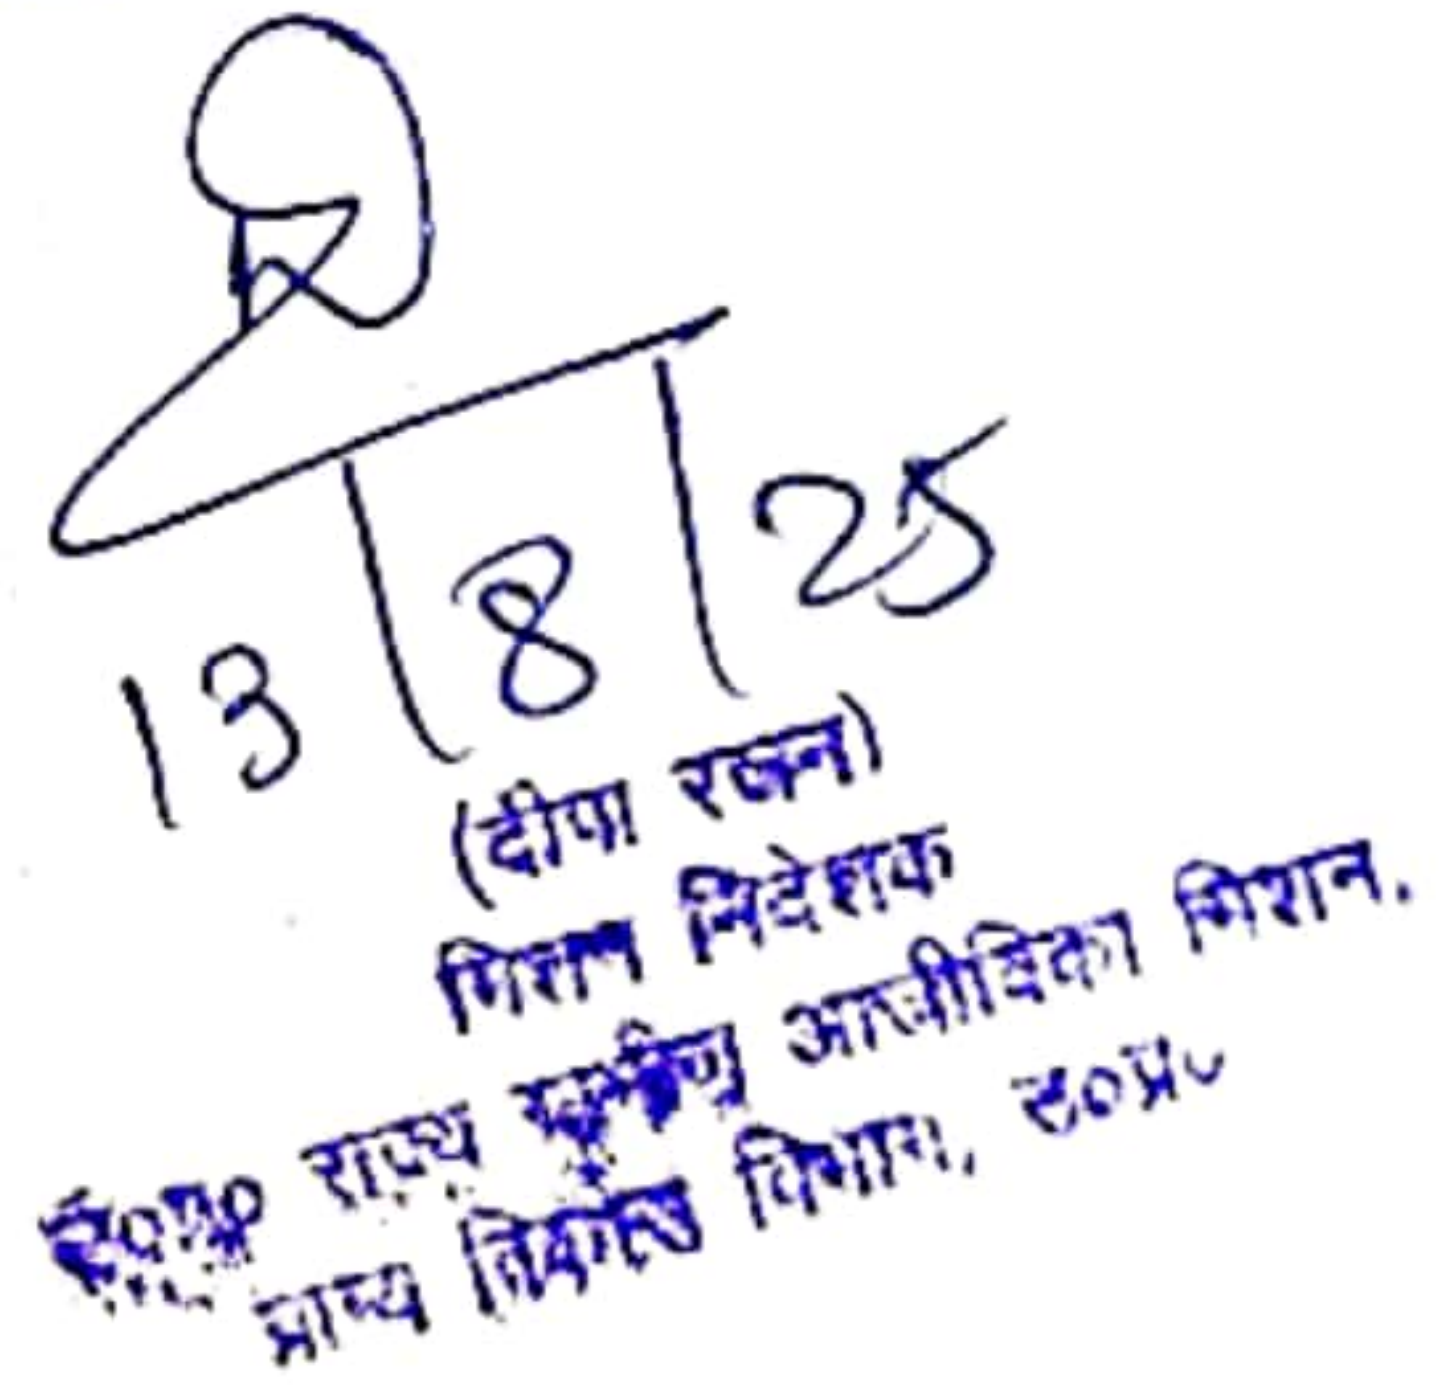 13/8/25
(दीपा रंजन)
मिशन निदेशक
उ०प्र० राज्य ग्रामीण आजीविका मिशन,
ग्राम्य विकास विभाग, उ०प्र०